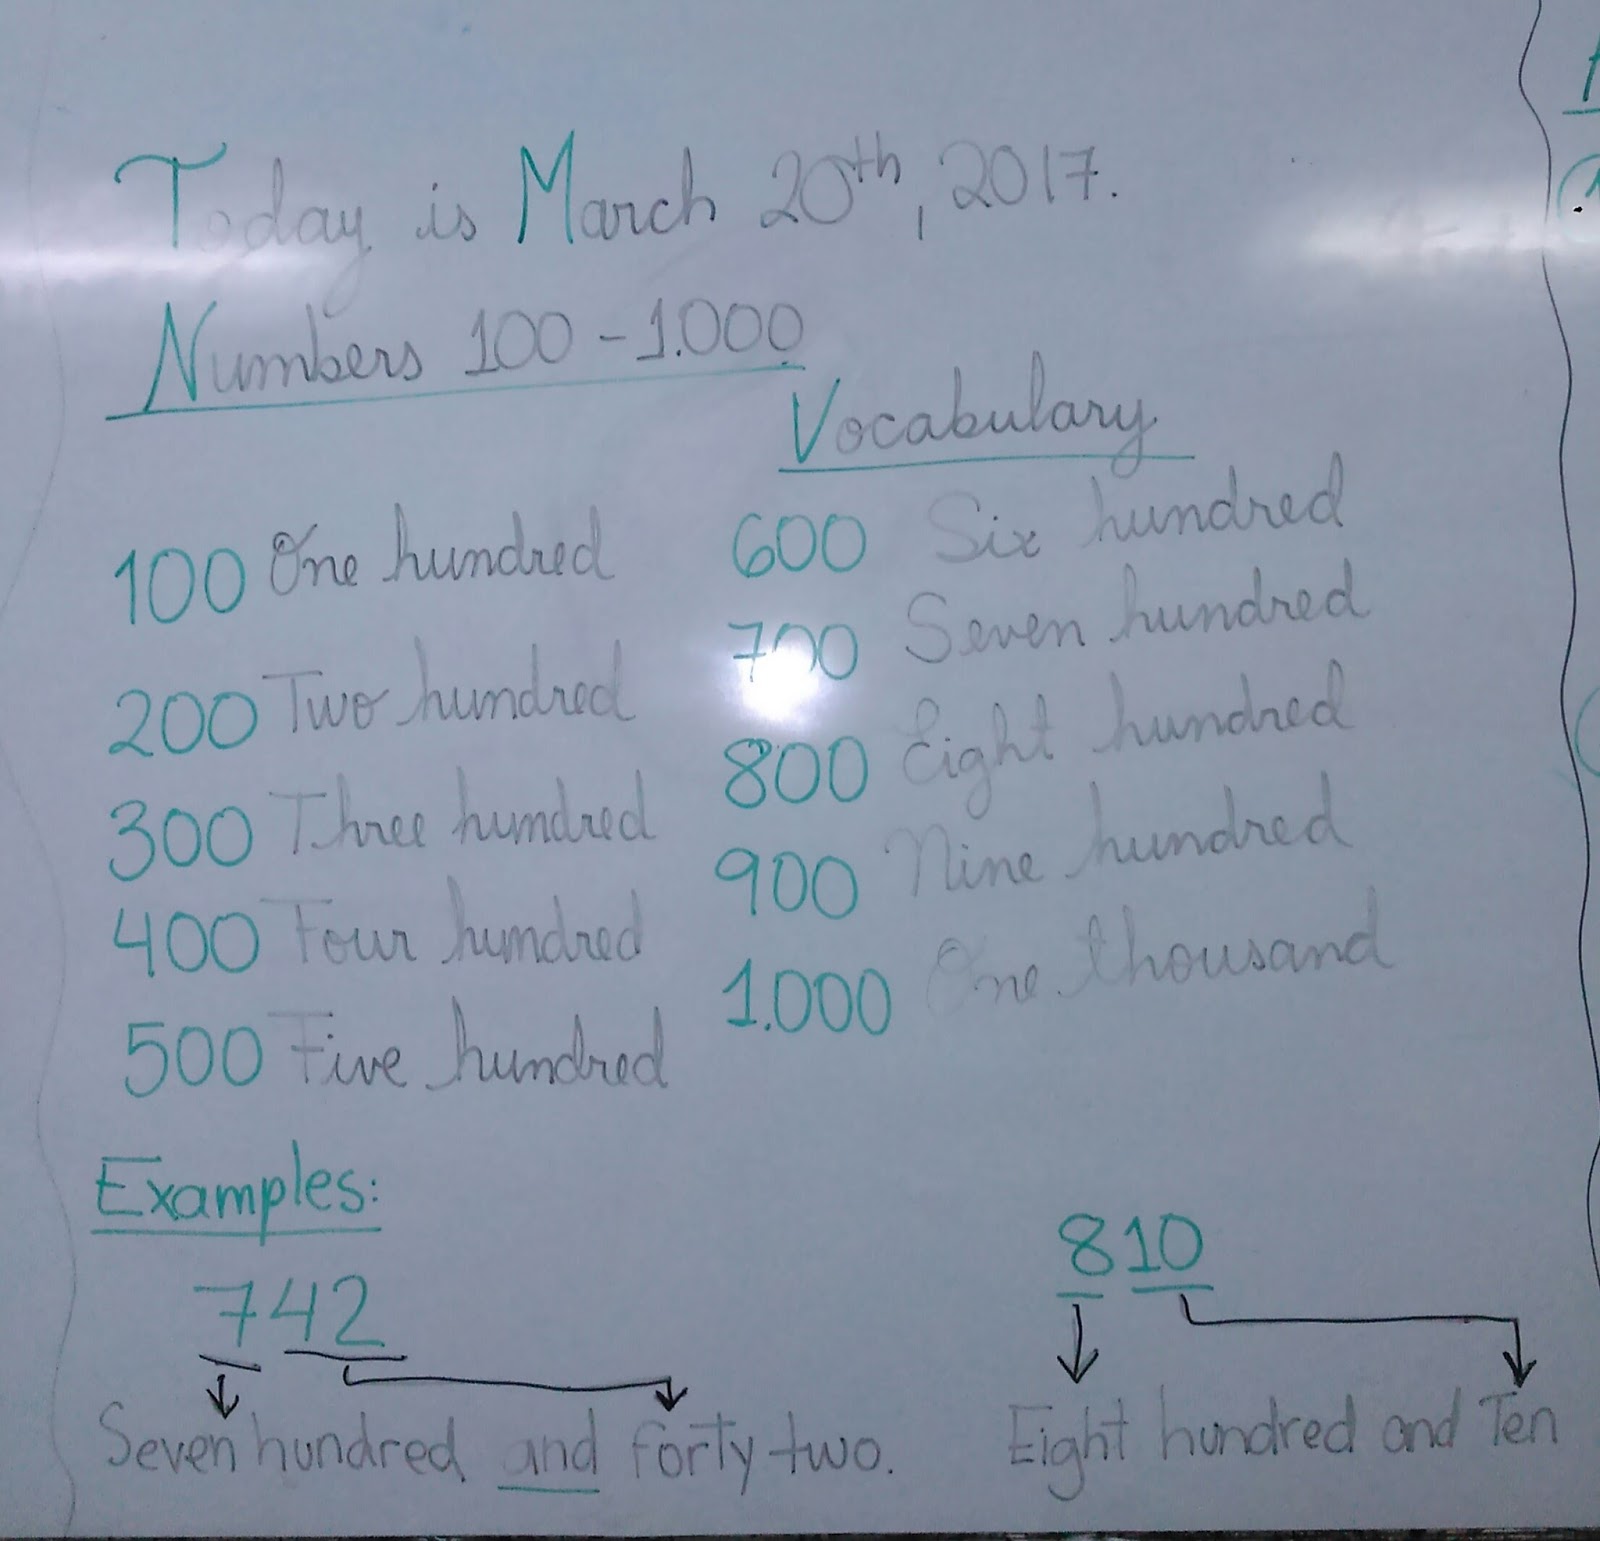 Today is March 20th, 2017.
Numbers 100 - 1.000
Vocabulary
100 One hundred
200 Two hundred
300 Three hundred
400 Four hundred
500 Five hundred
600 Six hundred
700 Seven hundred
800 Eight hundred
900 Nine hundred
1.000 One thousand
Examples:
742
Seven hundred and forty two.
810
Eight hundred and Ten